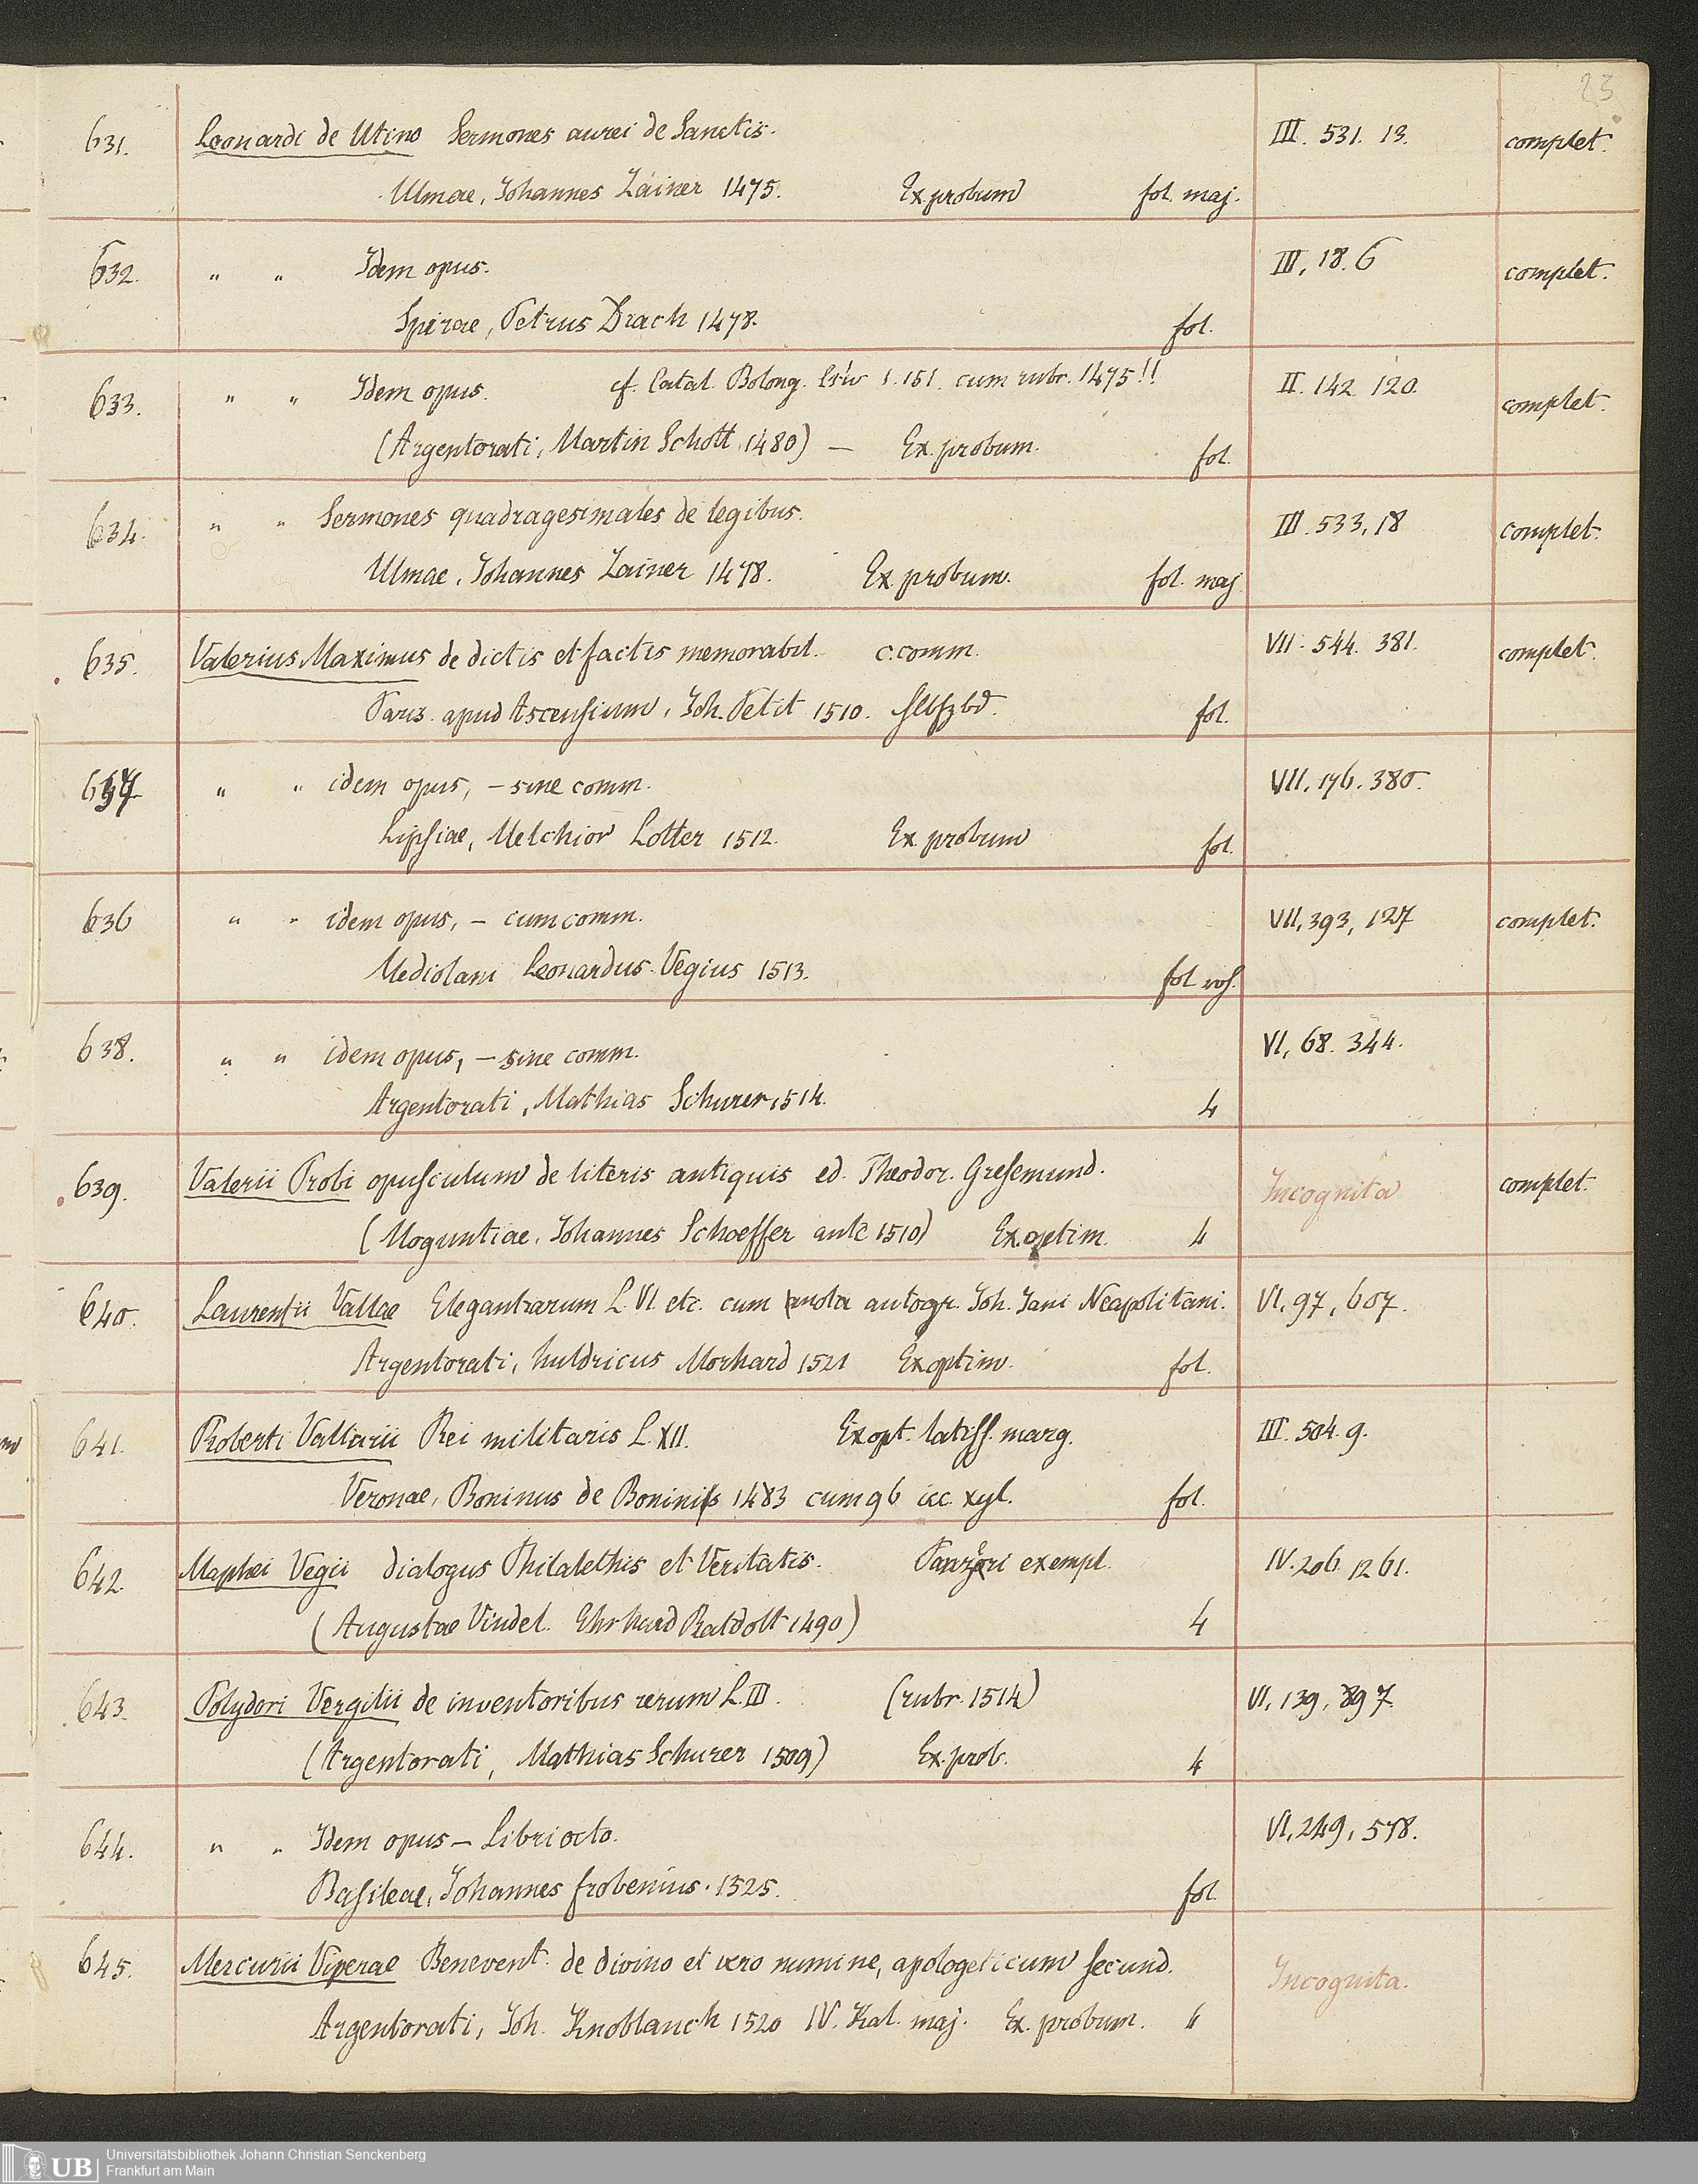 23
631. Leonardi de Utino Sermones aurei de Sanctis. III. 531. 13. complet.
Ulmae, Johannes Zainer 1475. Ex. probum fol. maj.
632. " " Idem opus. III, 18. 6 complet.
Spirae, Petrus Drach 1478. fol.
633. " " Idem opus. cf. Catal. Bolong. 1. 151. cum rubr. 1475!! II. 142. 120. complet.
(Argentorati, Martin Schott 1480) — Ex. probum. fol.
634. " " Sermones quadragesimales de legibus. III. 533, 18 complet.
Ulmae, Johannes Zainer 1478. Ex probum. fol. maj
635. Valerius Maximus de dictis et factis memorabil. c. comm. VII. 544. 381. complet.
Paris. apud Ascensium, Joh. Petit 1510. fol.
637 " " idem opus, — sine comm. VII. 176. 380.
Lipsiae, Melchior Lotter 1512. Ex. probum fol.
636 " " idem opus, — cum comm. VII, 393, 127 complet.
Mediolani Leonardus Vegius 1513. fol
638. " " idem opus, — sine comm. VI, 68. 344.
Argentorati, Mathias Schurer 1514. 4
639. Valerii Probi opusculum de literis antiquis ed. Theodor. Gresemund. Incognita complet.
(Moguntiae, Johannes Schoeffer ante 1510) Ex. optim. 4
640. Laurentii Vallae Elegantiarum L. VI. etc. cum nota autogr. Joh. Jani Neapolitani. VI, 97, 607.
Argentorati, huldricus Morhard 1521 Ex optim. fol.
641. Roberti Valturii Rei militaris L. XII. Ex opt. latiss. marg. III. 504. 9.
Veronae, Boninus de Boninis 1483 cum 96 icc. xyl. fol.
642. Maphei Vegii dialogus Philalethis et Veritatis. Panzeri exempl. IV. 206. 1261.
(Augustae Vindel. Ehrhard Ratdolt 1490) 4
643. Polydori Vergilii de inventoribus rerum L. III. (rubr. 1514) VI, 139, 897.
(Argentorati, Mathias Schurer 1509) Ex. prob. 4
644. " " Idem opus — Libri octo. VI, 249, 578.
Basileae, Johannes frobenius. 1525. fol.
645. Mercurii Viperae Benevent. de divino et vero numine, apologeticum secund. Incognita.
Argentorati, Joh. Knoblauch 1520 IV. Kal. maj. Ex. probum. 4
UB Universitätsbibliothek Johann Christian Senckenberg
Frankfurt am Main